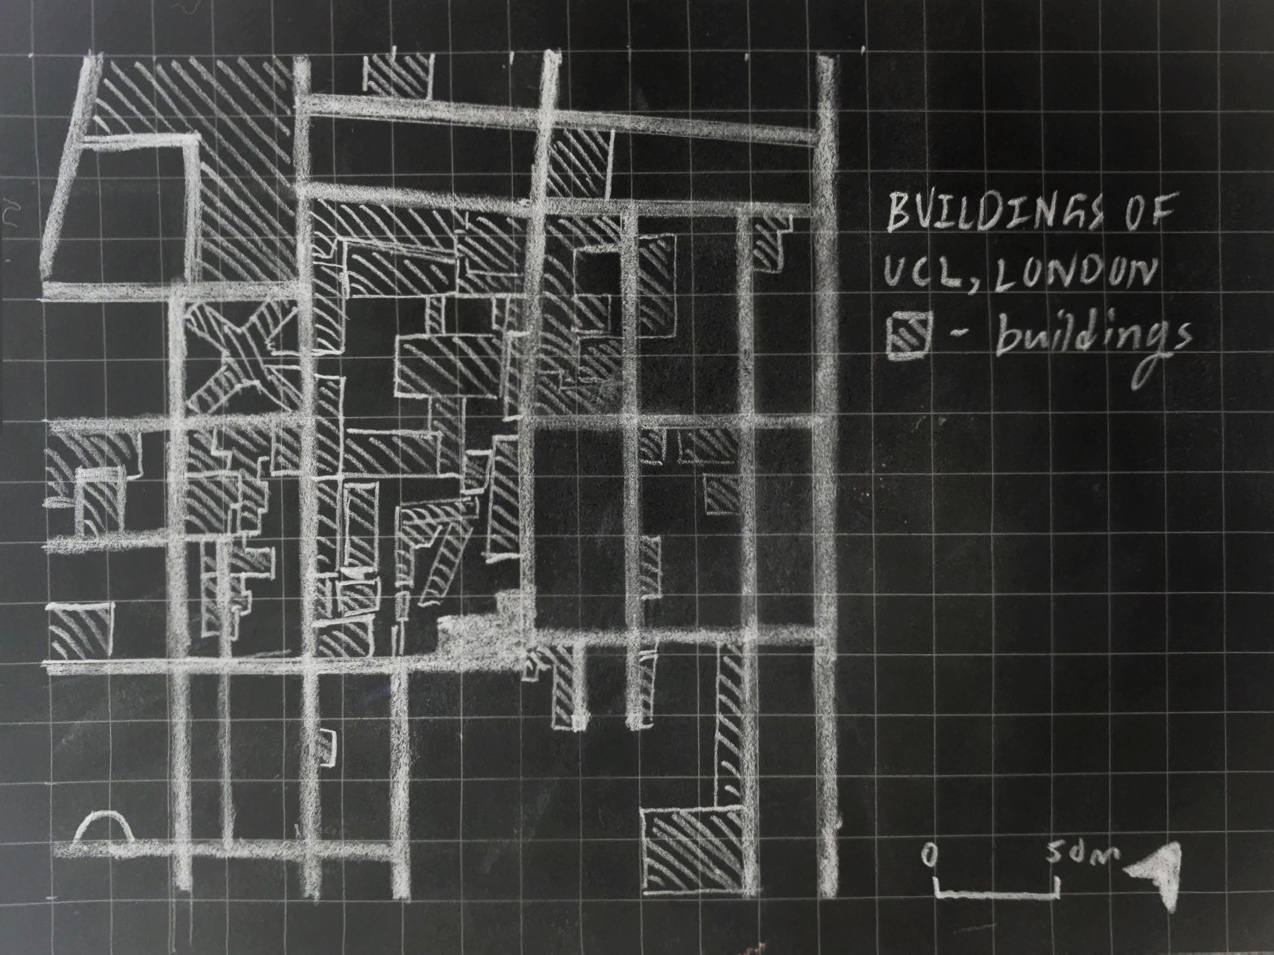 BUILDINGS OF
UCL, LONDON
- buildings
0 50m